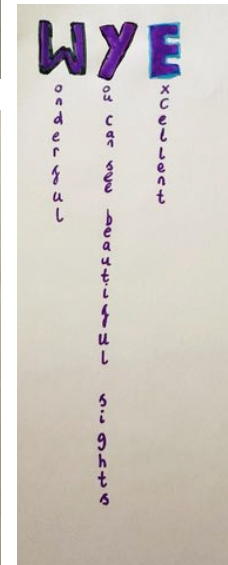 Wonderful
You can see beautiful sights
Excellent